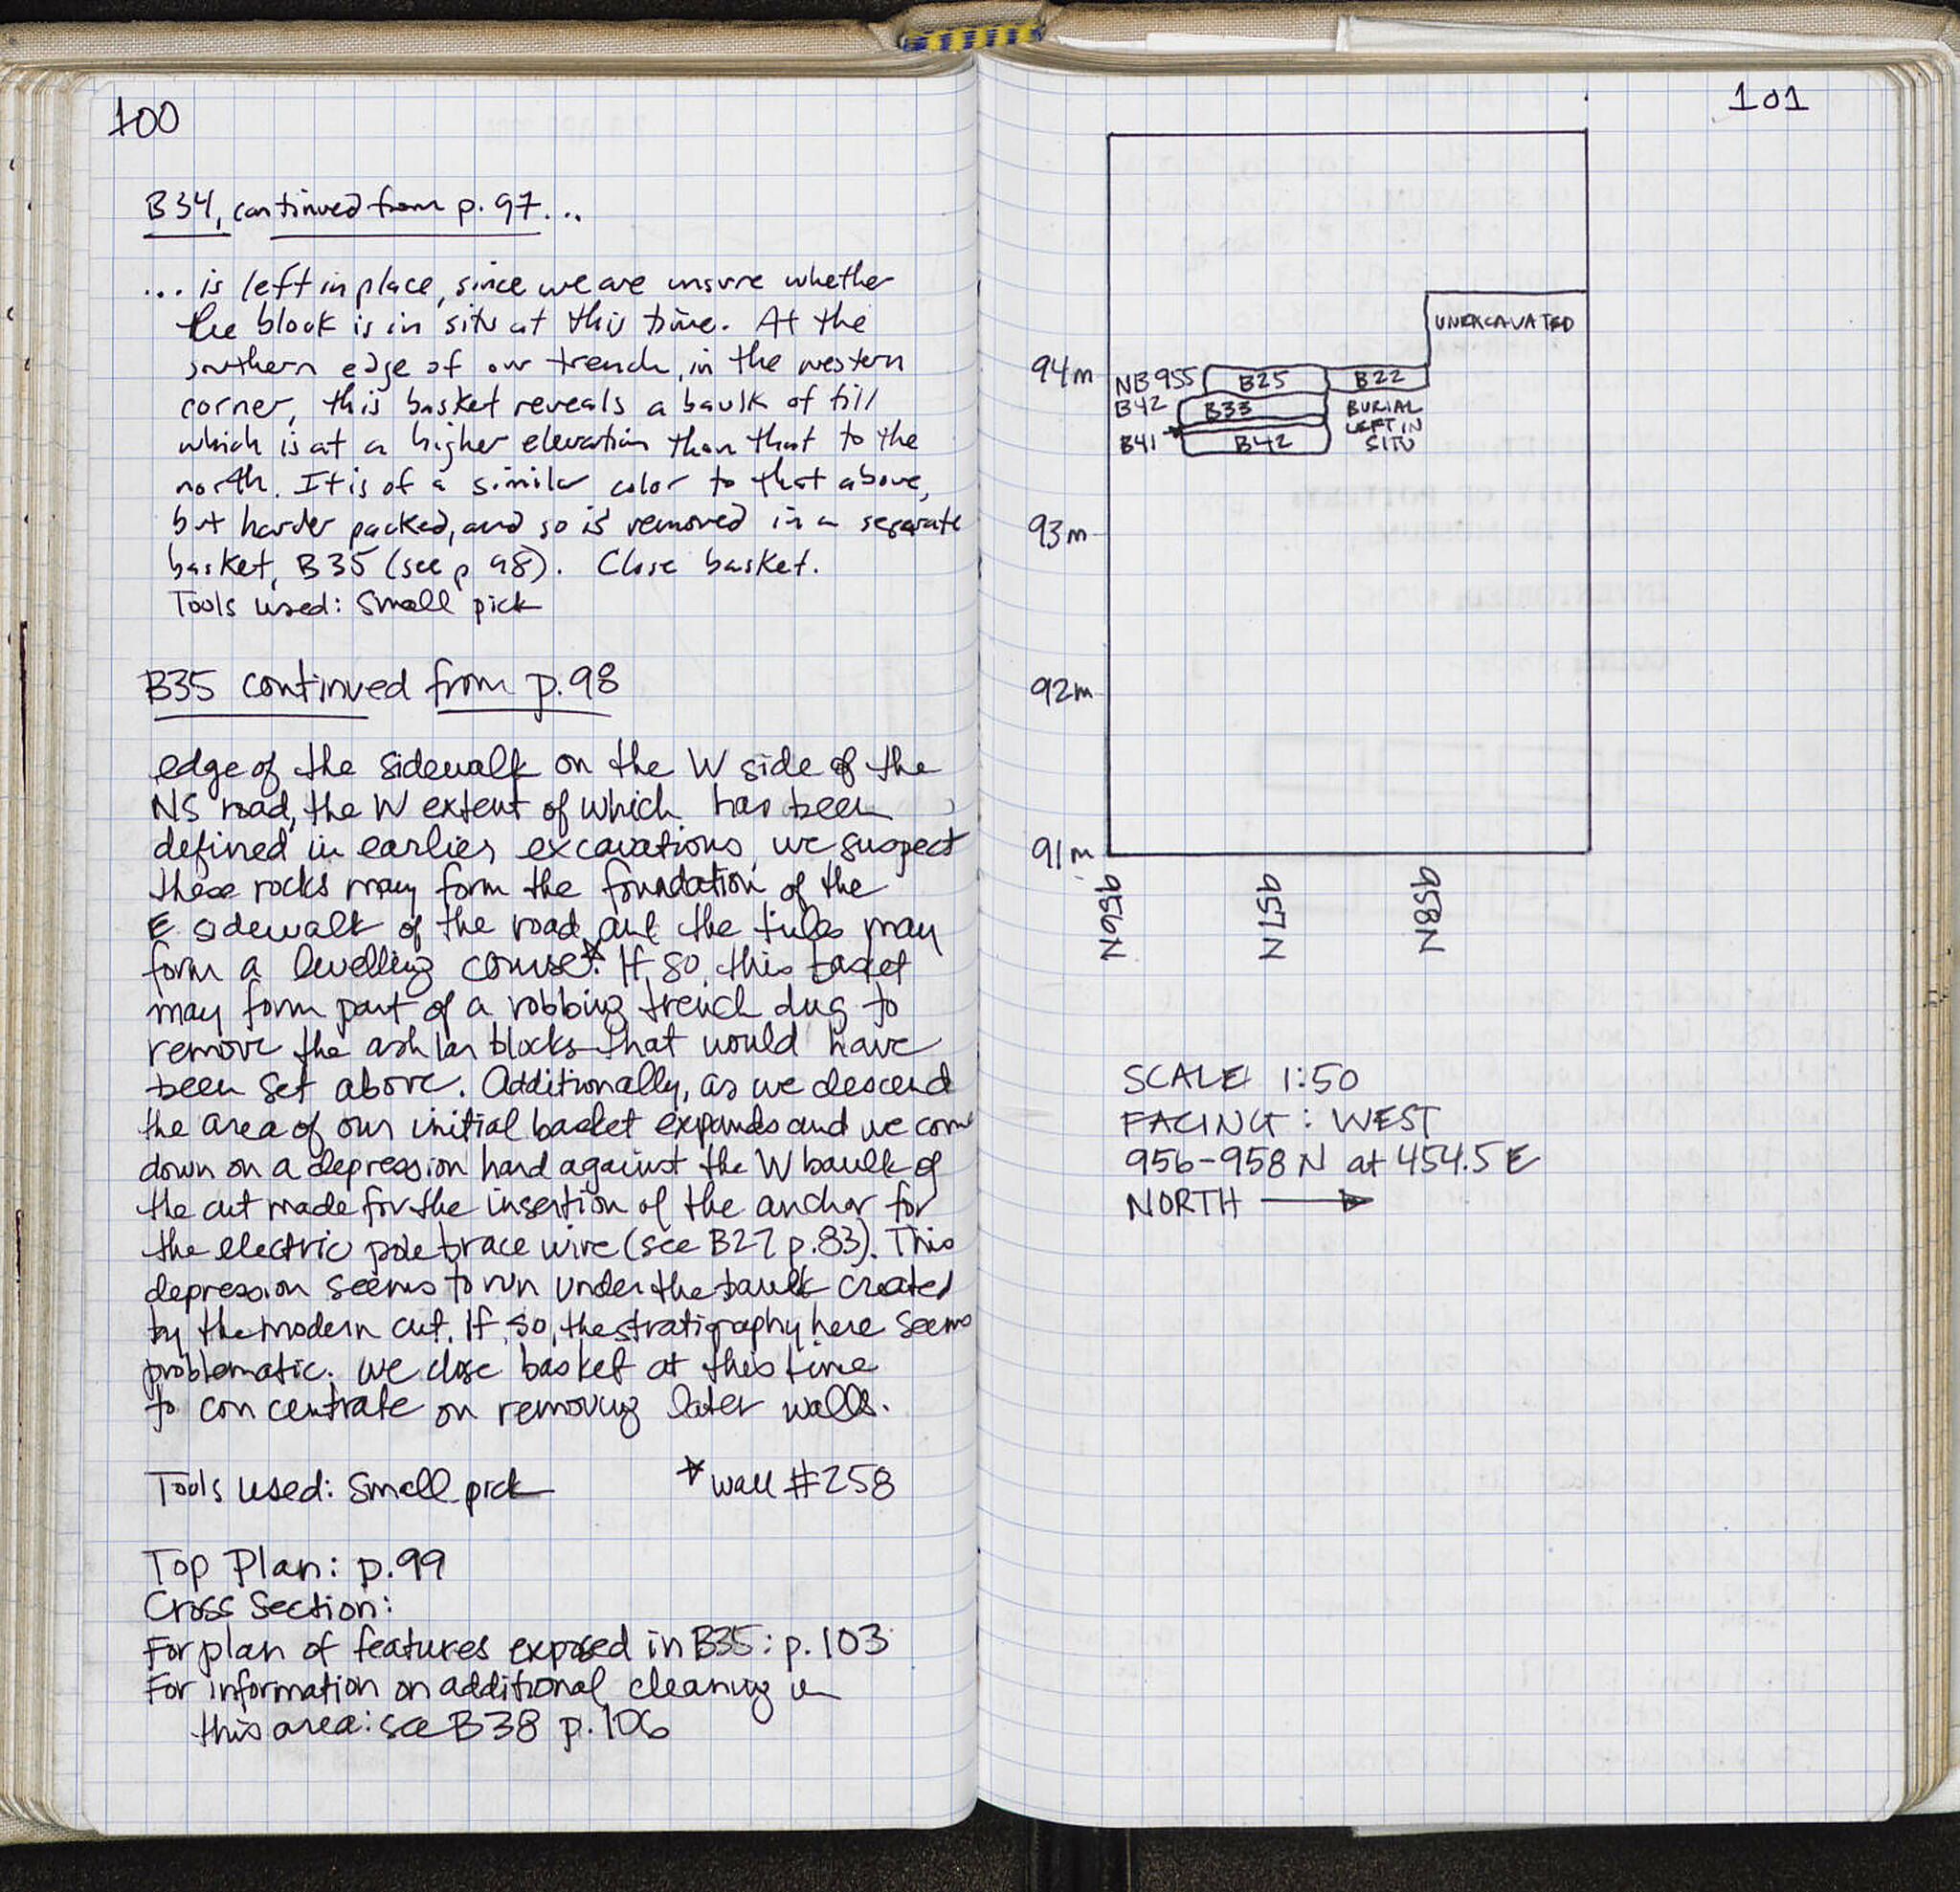 100
B34, continued from p. 97...
... is left in place, since we are unsure whether
the block is in situ at this time. At the
southern edge of our trench, in the western
corner, this basket reveals a baulk of fill
which is at a higher elevation than that to the
north. It is of a similar color to that above,
but harder packed, and so is removed in a separate
basket, B35 (see p 98). Close basket.
Tools used: Small pick
B35 continued from p.98
edge of the sidewalk on the W side of the
NS road, the W extent of which has been
defined in earlier excavations, we suspect
these rocks may form the foundation of the
E sidewalk of the road and the tiles may
form a levelling course.* If so, this basket
may form part of a robbing trench dug to
remove the ashlar blocks that would have
been set above. Additionally, as we descend
the area of our initial basket expands and we come
down on a depression hard against the W baulk of
the cut made for the insertion of the anchor for
the electric pole brace wire (see B27 p.83). This
depression seems to run under the baulk created
by the modern cut. If so, the stratigraphy here seems
problematic. We close basket at this time
to concentrate on removing later walls.
Tools used: Small pick
* wall #258
Top Plan: p.99
Cross Section:
For plan of features exposed in B35: p. 103
For information on additional cleaning in
this area: see B38 p. 106
101
UNEXCAVATED
94m
NB 955
B25
B22
B42
B33
BURIAL
LEFT IN
SITU
B41
B42
93m
92m
91m
956N
957N
958N
SCALE 1:50
FACING: WEST
956-958 N at 454.5 E
NORTH →